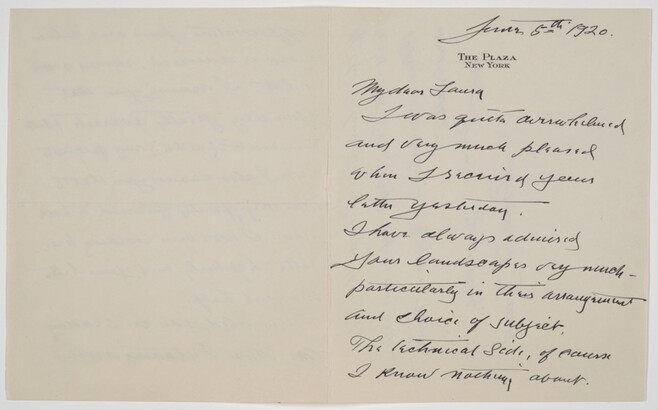 June 5th 1920.
THE PLAZA
NEW YORK
My dear Laura
I was quite overwhelmed
and very much pleased
when I received your
letter yesterday.
I have always admired
your landscapes very much -
particularly in their arrangement
and choice of subject.
The technical side, of course
I know nothing about.